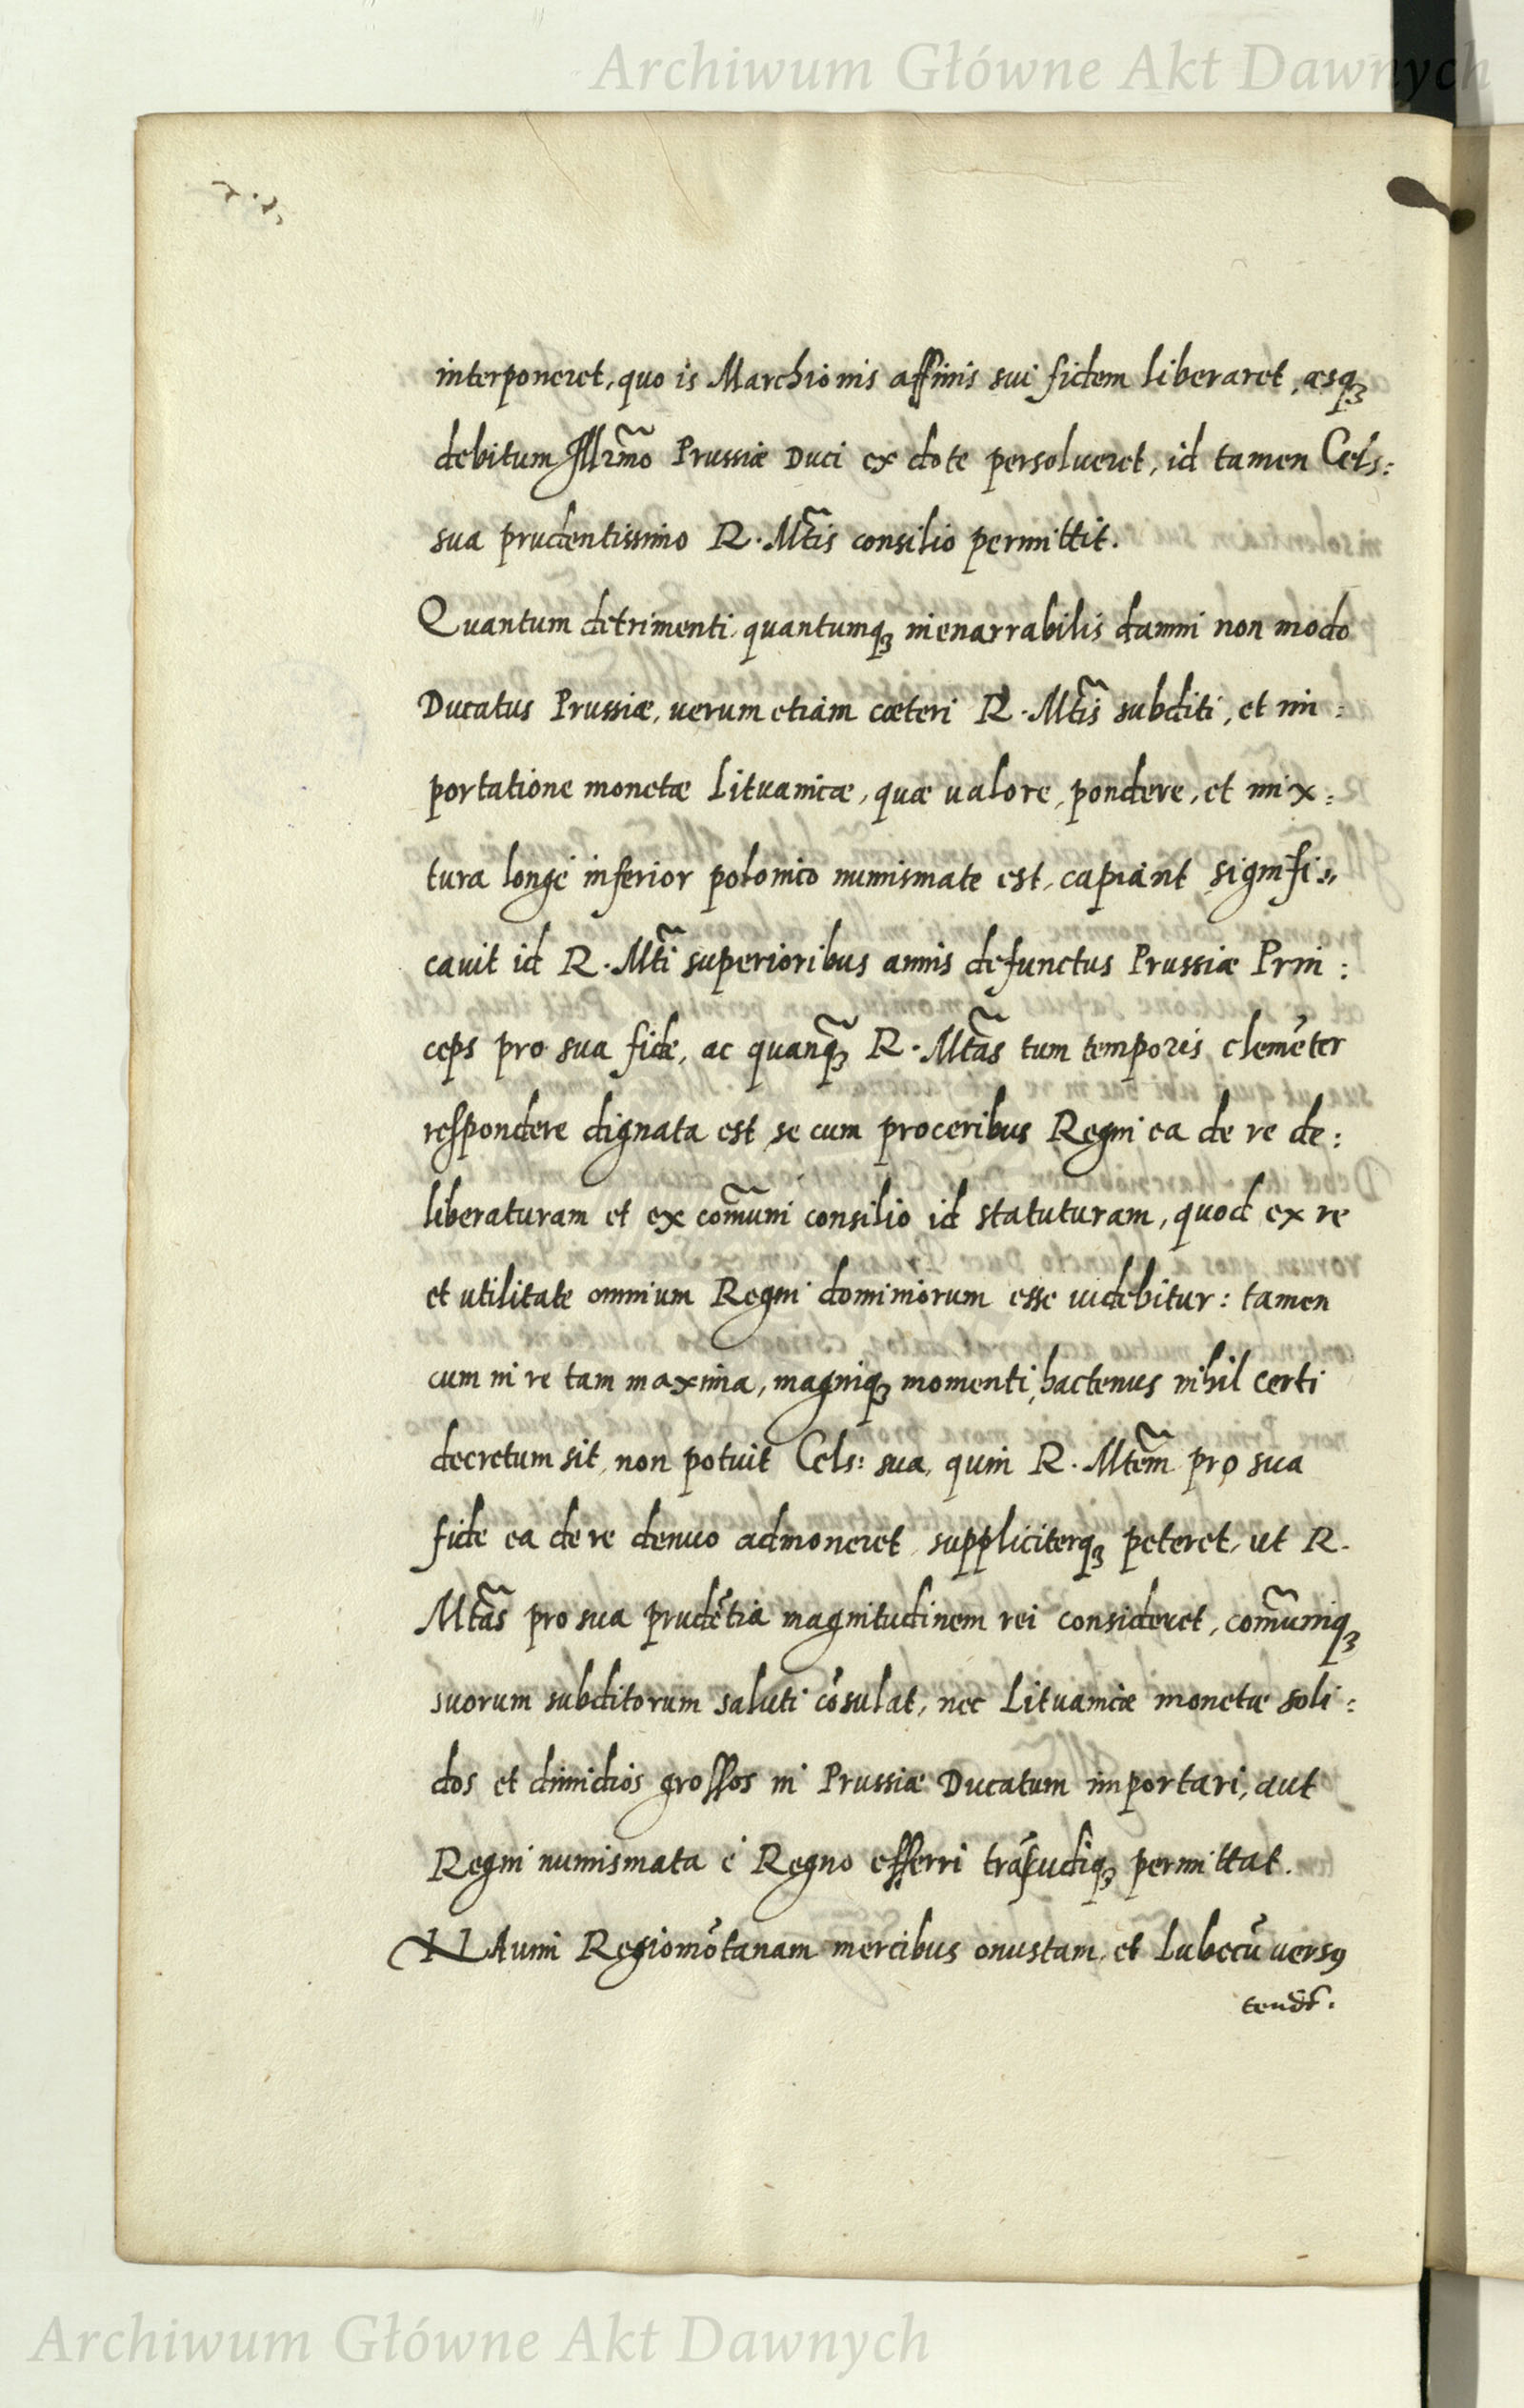 Archiwum Główne Akt Dawnych
interponeret, quo is Marchionis affinis sui fidem liberaret, æsq₃
debitum Illrm̃o Prussiæ Duci ex dote persolueret, id tamen Cels:
sua prudentissimo R. Mt̃is consilio permittit.
Quantum detrimenti, quantumq₃ inenarrabilis damni non modo
Ducatus Prussiæ, uerum etiam cæteri R. Mt̃is subditi, et im:
portatione monetæ Lituanicæ, quæ ualore, pondere, et mix:
tura longè inferior polonico numismate est, capiant signifi:
cauit id R. Mt̃i superioribus annis defunctus Prussiæ Prin:
ceps pro sua fide, ac quanq̃₃ R. Mt̃as tum temporis clemẽter
respondere dignata est, se cum proceribus Regni ea de re de:
liberaturam et ex com̃uni consilio id statuturam, quod ex re
et utilitate omnium Regni dominiorum esse uidebitur: tamen
cum in re tam maxima, magniq₃ momenti, hactenus nihil certi
decretum sit, non potuit Cels: sua, quin R. Mtẽm pro sua
fide ea de re denuo admoneret, suppliciterq₃ peteret, ut R.
Mt̃as pro sua prudẽtia magnitudinem rei consideret, com̃uniq₃
suorum subditorum saluti cõsulat, nec Lituanicæ monetæ soli:
dos et dimidios grossos in Prussiæ Ducatum importari, aut
Regni numismata è Regno efferri trãsudiq₃ permittat.
NAuim Regiomõtanam mercibus onustam, et Lubecũ uersꝰ
Archiwum Główne Akt Dawnych